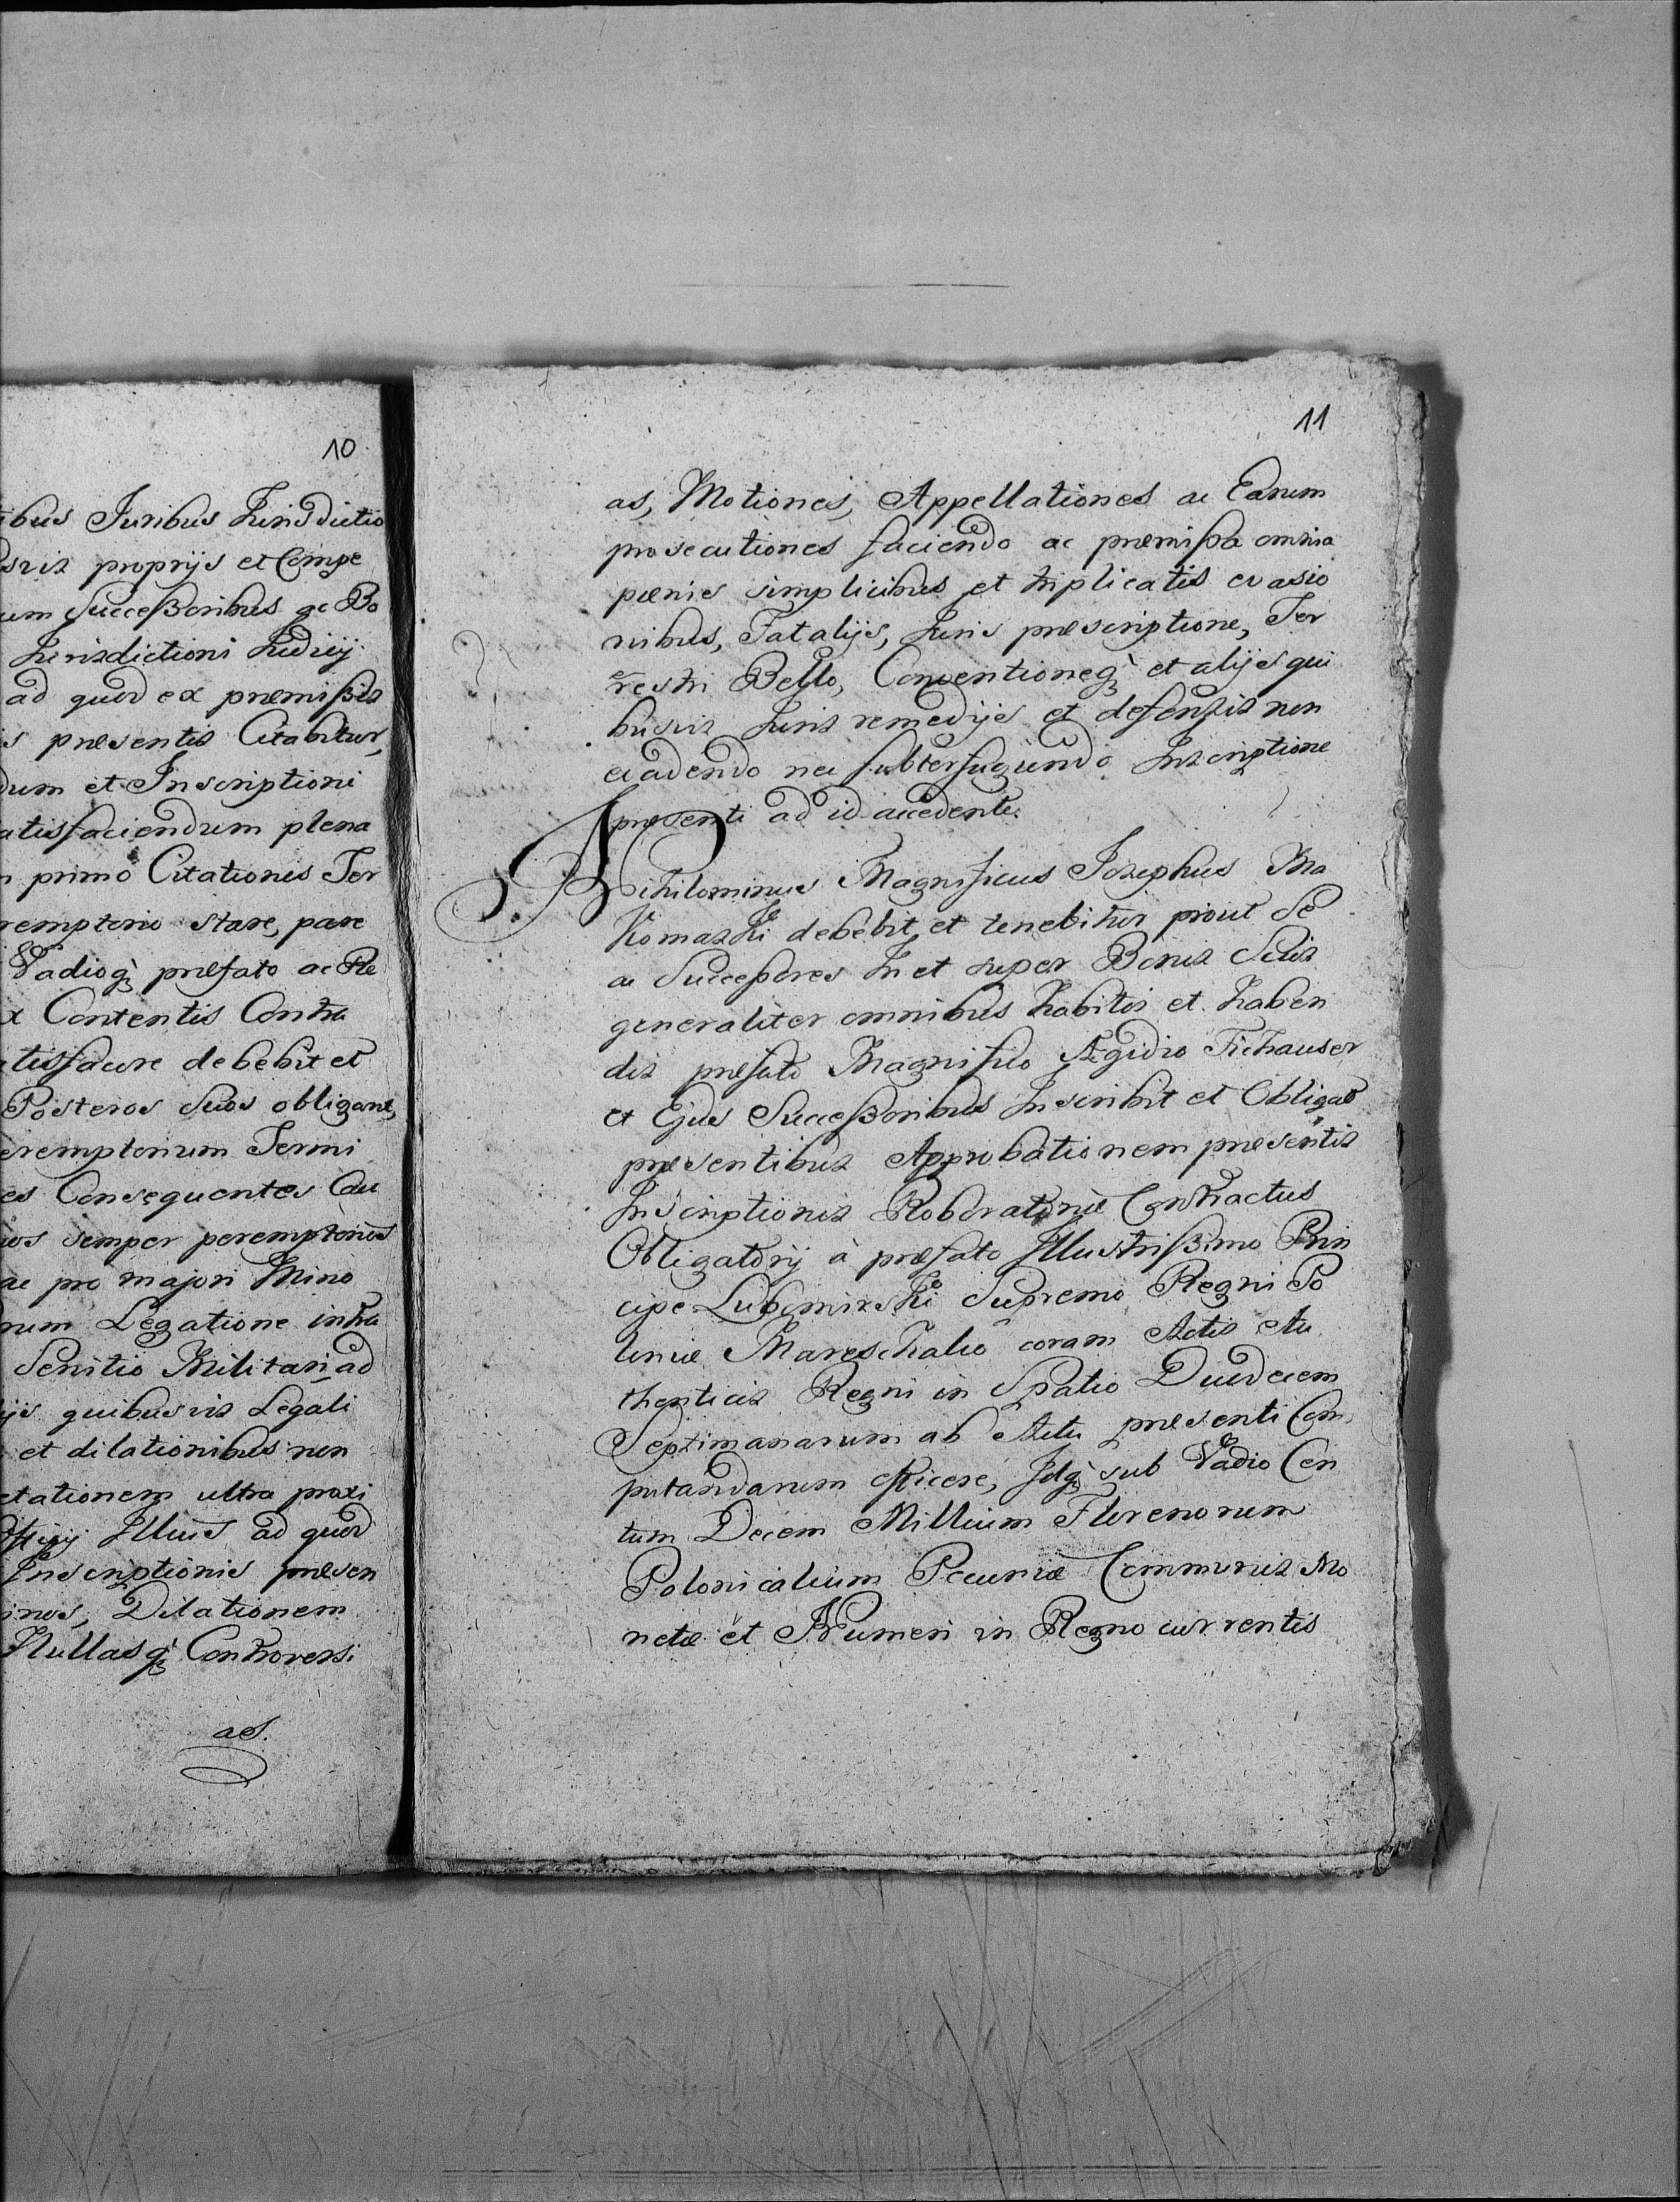 10
ibus Juribus Jurisdictio
svis proprijs et Compe
um Succeßoribus ac Bo
Jurisdictioni Judicij
ad quod ex præmißis
s præsentis Citabitur,
dum et Inscriptioni
atisfaciendum plena
primo Citationis Ter
remptorio stare, pare
Vadioq; præfato ac Re
x Contentis Contra
tisfacere debebit et
Posteros Suos obligant,
eremptorium Termi
es Consequentes Cau
semper peremptorios
ac pro majori Mino
rum Legatione intra
Servitio Militari, ad
ijs quibusvis Legali
et dilationibus non
etationem ultra proxi
Officij Illius ad quod
Inscriptionis præsen
inos, Dilationem
Nullasq; Controversi
as.
11
as, Motiones, Appellationes ac Earum
prosecutiones faciendo ac præmißa omnia
pœnis simplicibus et triplicatis evasio
nibus, Fatalijs, Juris præscriptione, Ter
restri Bello, Conventioneq; et alijs qui
busvis Juris remedijs et defensis non
evadendo nec subterfugiendo Inscriptione
præsenti ad id accedente.
Nihilominus Magnificus Josephus Ma
Komaski debebit et tenebitur prout Se
ac Succeßores In et super Bonis Suis
generaliter omnibus habitis et haben
dis præfato Magnifico Ægidio Fichauser
et Ejus Succeßoribus Inscribit et Obligat
præsentibus Approbationem præsentis
Inscriptionis Roboratoriæ Contractus
Obligatorij à præfato Illustrißimo Prin
cipe Lubomirski Supremo Regni Po
loniæ Mareschalio coram Actis Au
thenticis Regni in Spatio Duodecem
Septimanarum ab Actu præsenti Com
putandarum efficere, Idq; sub Vadio Cen
tum Decem Millium Florenorum
Polonicalium Pecuniæ Communis Mo
netæ et Numeri in Regno currentis